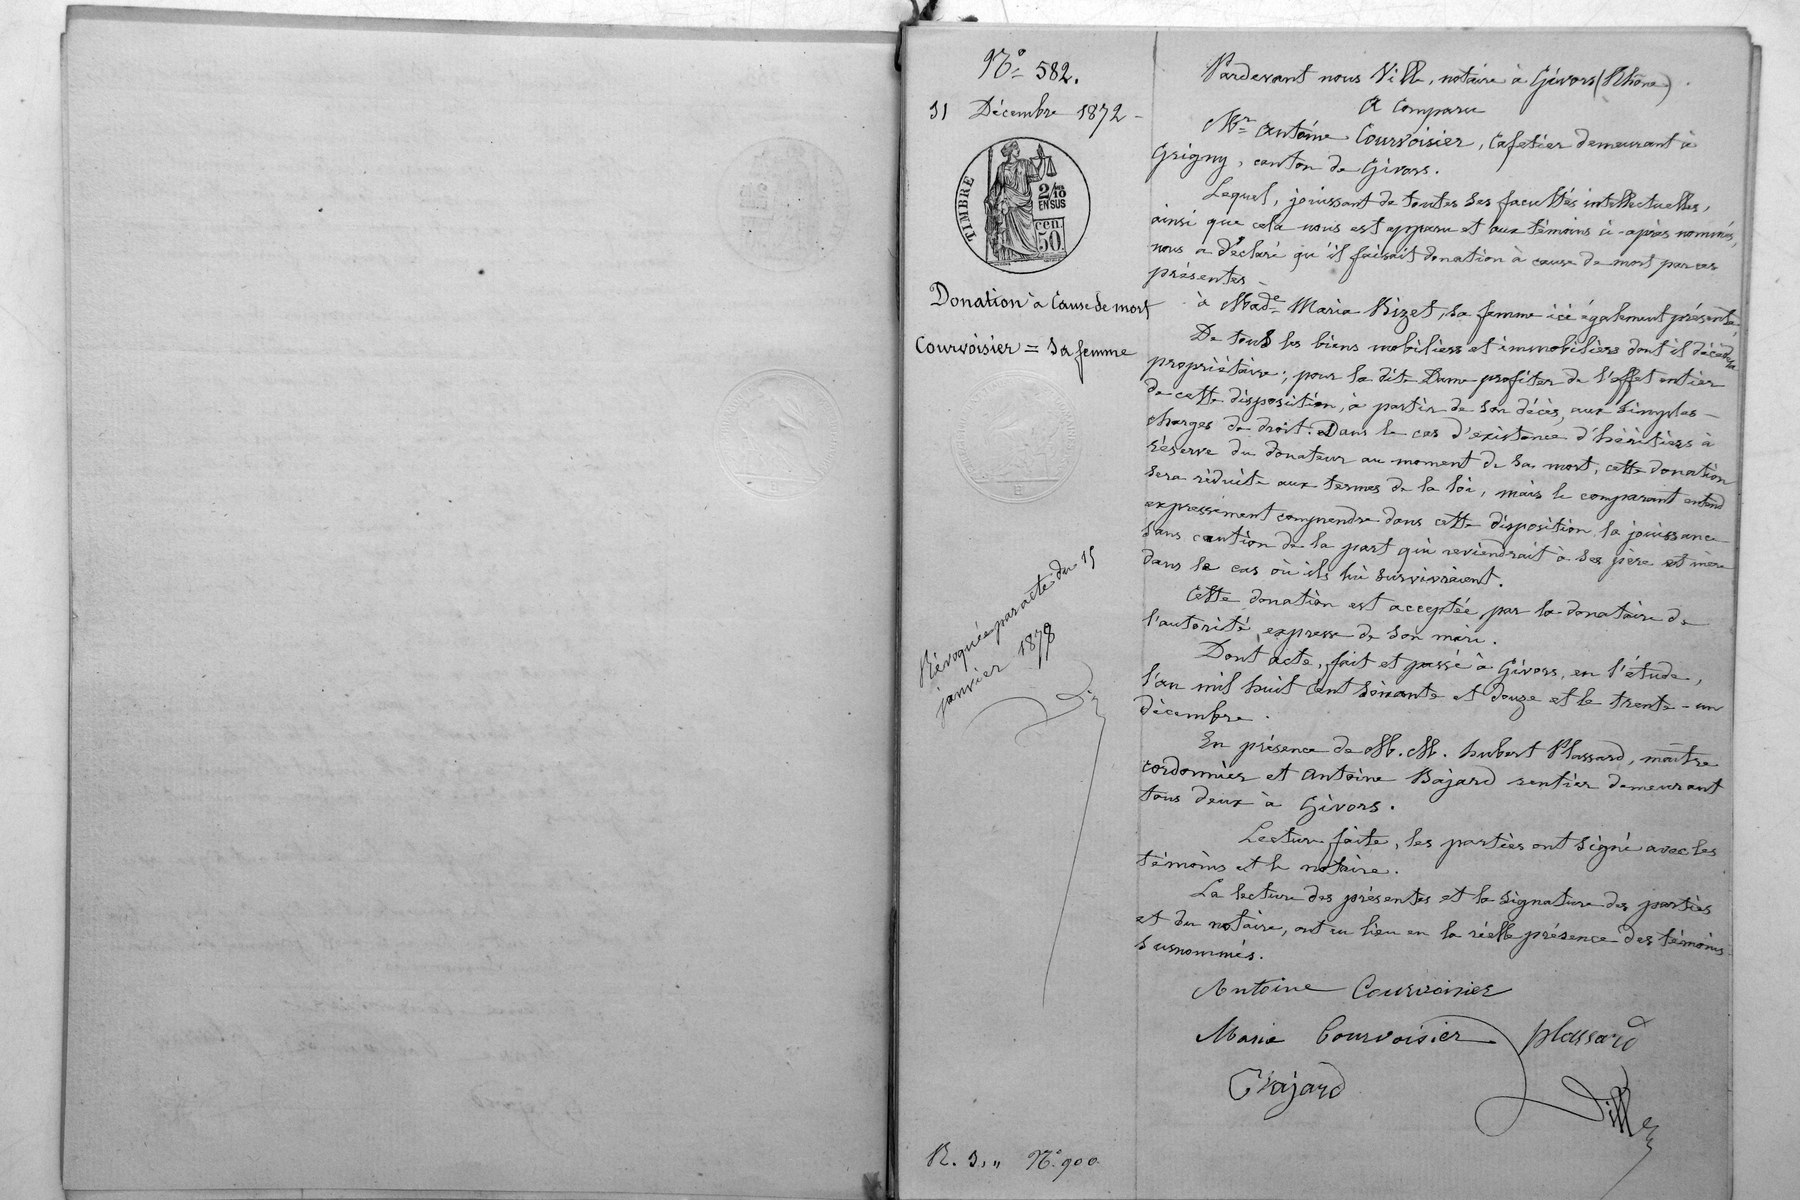 N° 582.
31 Décembre 1872 -
TIMBRE
2/10
EN SUS
cen.
50
Donation à Cause de mort
Courvoisier = Sa femme
Révoquée par acte du 15
janvier 1878
R. 3,, N° 900
Pardevant nous Ville, notaire à Givors (Rhône)
A Comparu
Mr Antoine Courvoisier, Cafetier demeurant à
Grigny, canton de Givors.
Lequel, jouissant de toutes ses facultés intellectuelles,
ainsi que cela nous est apparu et aux témoins ci-après nommés,
nous a déclaré qu'il faisait donation à cause de mort par ces
présentes
à Made Maria Bizet, sa femme ici également présente,
De tous les biens mobiliers et immobiliers dont il décèdera
propriétaire; pour la dite Dame profiter de l'effet entier
de cette disposition, à partir de son décès, aux simples -
charges de droit. Dans le cas d'existence d'héritiers à
réserve du donateur au moment de sa mort, cette donation
sera réduite aux termes de la loi, mais le comparant entend
expressément comprendre dans cette disposition la jouissance
sans caution de la part qui reviendrait à ses père et mère
dans le cas où ils lui survivraient.
Cette donation est acceptée par la donataire de
l'autorité expresse de son mari.
Dont acte, fait et passé à Givors, en l'étude,
l'an mil huit cent soixante et douze et le trente-un
décembre.
En présence de M. M. hubert Plassard, maître
cordonnier et Antoine Bajard rentier demeurant
tous deux à Givors.
Lecture faite, les parties ont signé avec les
témoins et le notaire.
La lecture des présentes et la signature des parties
et du notaire, ont eu lieu en la réelle présence des témoins
susnommés.
Antoine Courvoisier
Maria Courvoisier Plassard
Bajard
Ville